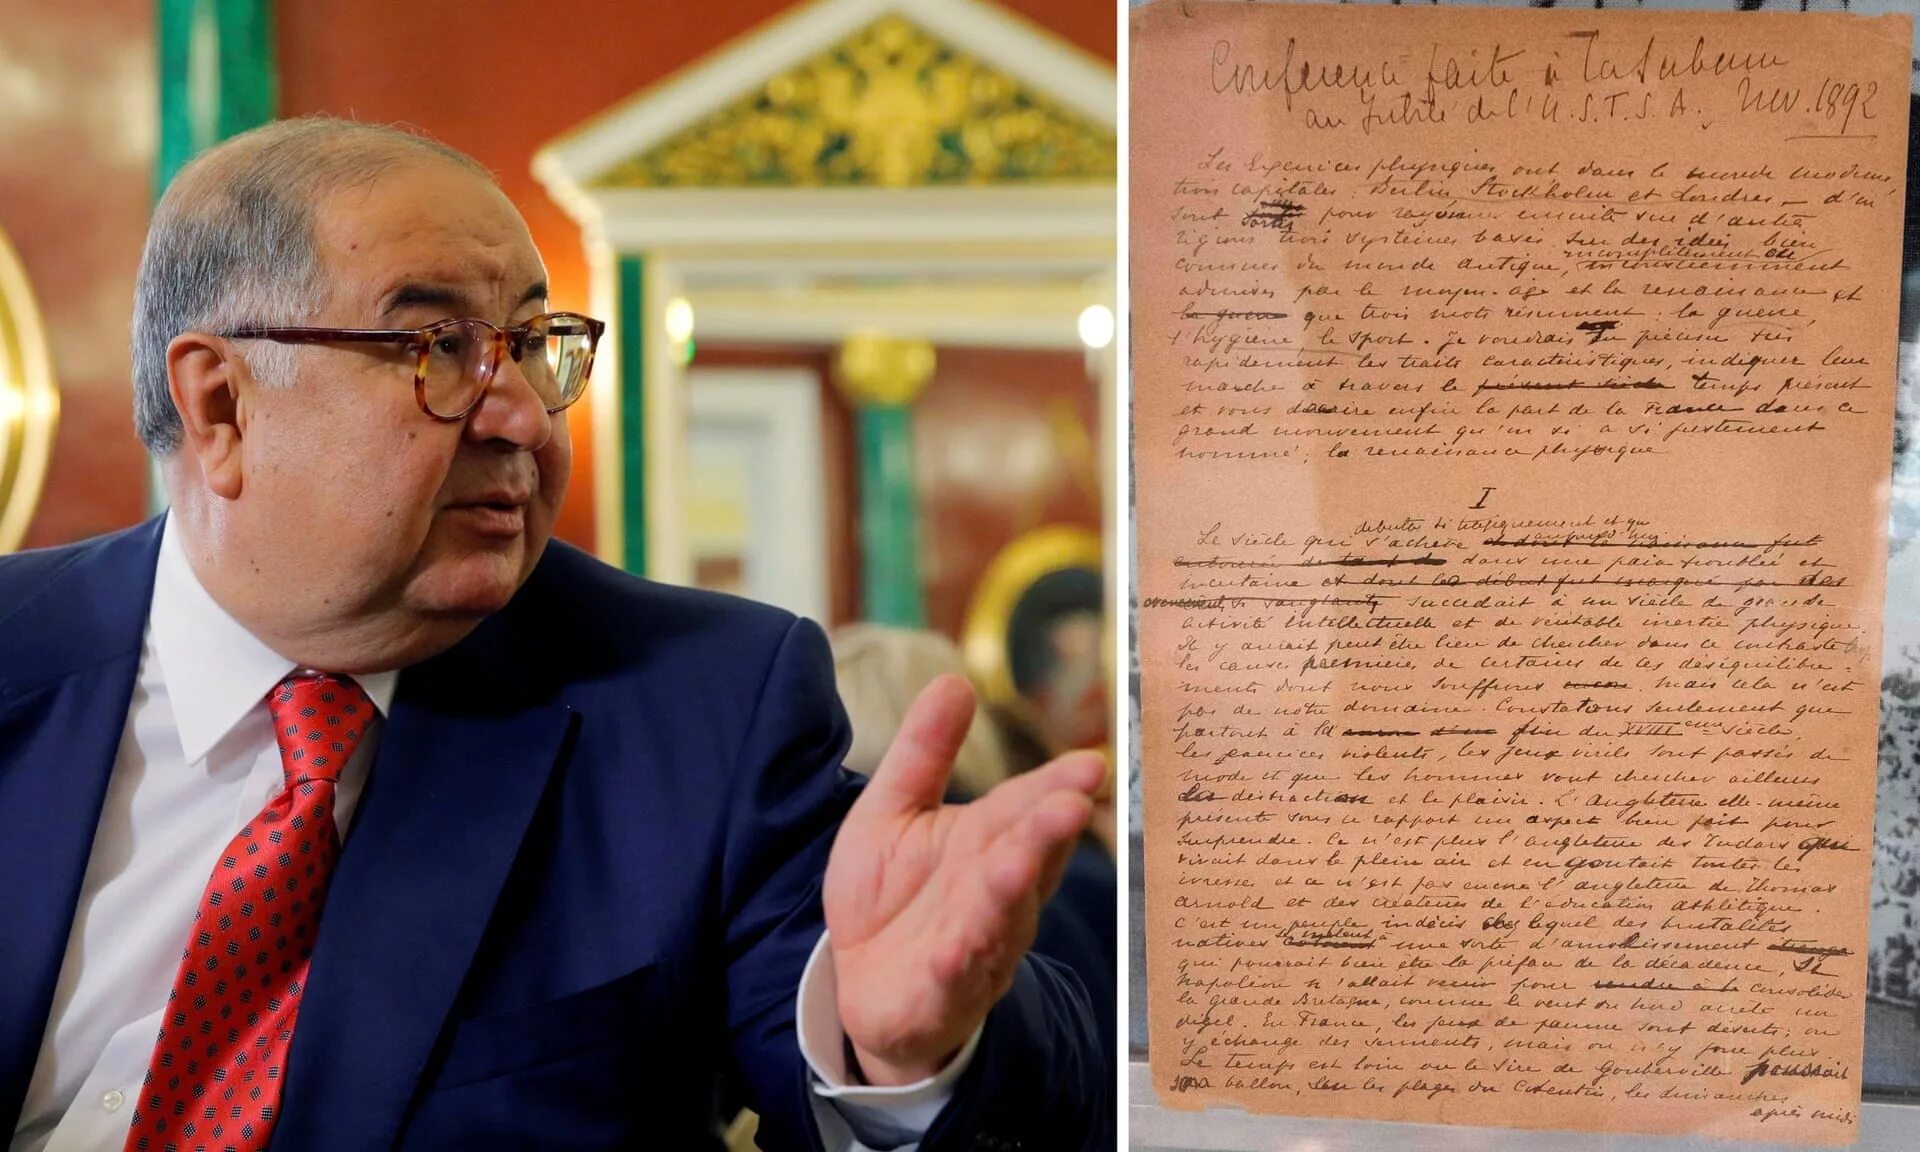 Conférence faite à la Sorbonne
au Jubilé de l'U.S.F.S.A. Nov. 1892
Les Exercices physiques ont dans le monde moderne
trois capitales : Berlin, Stockholm et Londres — d'où
sont sortis pour rayonner ensuite sur d'autres
régions trois systèmes basés sur des idées bien
incomplètement ou
connues du monde antique, inconsciemment
admises par le moyen-age et la renaissance et
la guerre que trois mots résument : la guerre,
l'hygiène, le sport. Je voudrais en préciser très
rapidement les traits caractéristiques, indiquer leur
marche à travers le présent siècle temps présent
et vous décrire enfin la part de la France dans ce
grand mouvement qu'on a si justement
nommé, la renaissance physique
I
débuta si tragiquement et qui
Le siècle qui s'achève
dans une paix troublée et
incertaine et dont le début fut marqué par des
évènements si sanglants succédait à un siècle de grande
activité intellectuelle et de véritable inertie physique.
Il y aurait peut être lieu de chercher dans ce contraste
les causes premières de certains de ces déséquilibre-
ments dont nous souffrons encore. Mais cela n'est
pas de notre domaine. Constatons seulement que
partout à la fin du XVIIIeme siècle,
les exercices violents, les jeux virils sont passés de
mode et que les hommes vont chercher ailleurs
la distraction et le plaisir. L'Angleterre elle-même
présente sous ce rapport un aspect bien fait pour
surprendre. Ce n'est plus l'angleterre des Tudors qui
vivait dans le plein air et en goutait toutes les
ivresses et ce n'est pas encore l'angleterre de Thomas
Arnold et des créateurs de l'éducation athlétique.
C'est un peuple indécis chez lequel des brutalités
natives se mêlent à une sorte d'amollissement étrange
qui pourrait bien être la préface de la décadence, si
Napoléon n'allait venir pour rendre à la consolider
la grande Bretagne, comme le vent du nord arrête un
dégel. En France, les jeux de paume sont déserts ; on
y échange des serments, mais on n'y joue plus.
Le temps est loin où le Sire de Gouberville poussait
son ballon, sur les plages du Cotentin, les dimanches
après midi